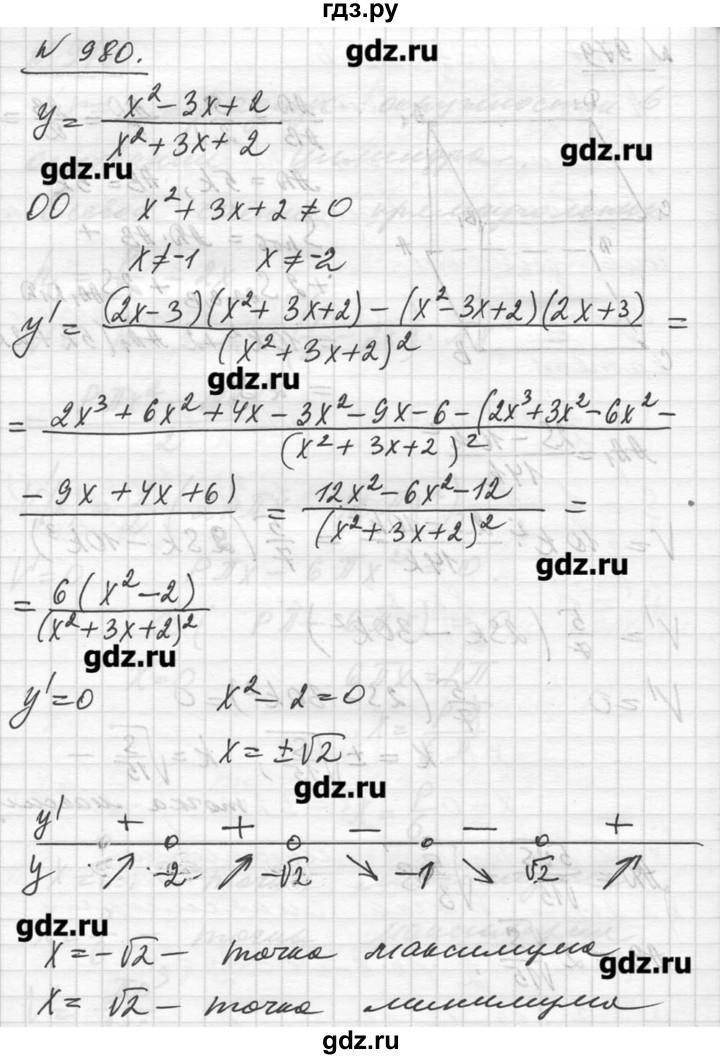 гдз.ру
№ 980.
gdz.ru
y = (x² - 3x + 2) / (x² + 3x + 2)
gdz.ru
gdz.ru
ОО x² + 3x + 2 ≠ 0
x ≠ -1 x ≠ -2
y' = ((2x - 3)(x² + 3x + 2) - (x² - 3x + 2)(2x + 3)) / (x² + 3x + 2)² =
gdz.ru
= (2x³ + 6x² + 4x - 3x² - 9x - 6 - (2x³ + 3x² - 6x² - / (x² + 3x + 2)²
- 9x + 4x + 6) = (12x² - 6x² - 12) / (x² + 3x + 2)² =
gdz.ru
= 6(x² - 2) / (x² + 3x + 2)²
gdz.ru
y' = 0 x² - 2 = 0
x = ±√2
gdz.ru
y' + + - - +
y ↗ -2 ↗ -√2 ↘ -1 ↘ √2 ↗
gdz.ru
x = -√2 - точка максимума
gdz.ru
x = √2 - точка минимума
gdz.ru